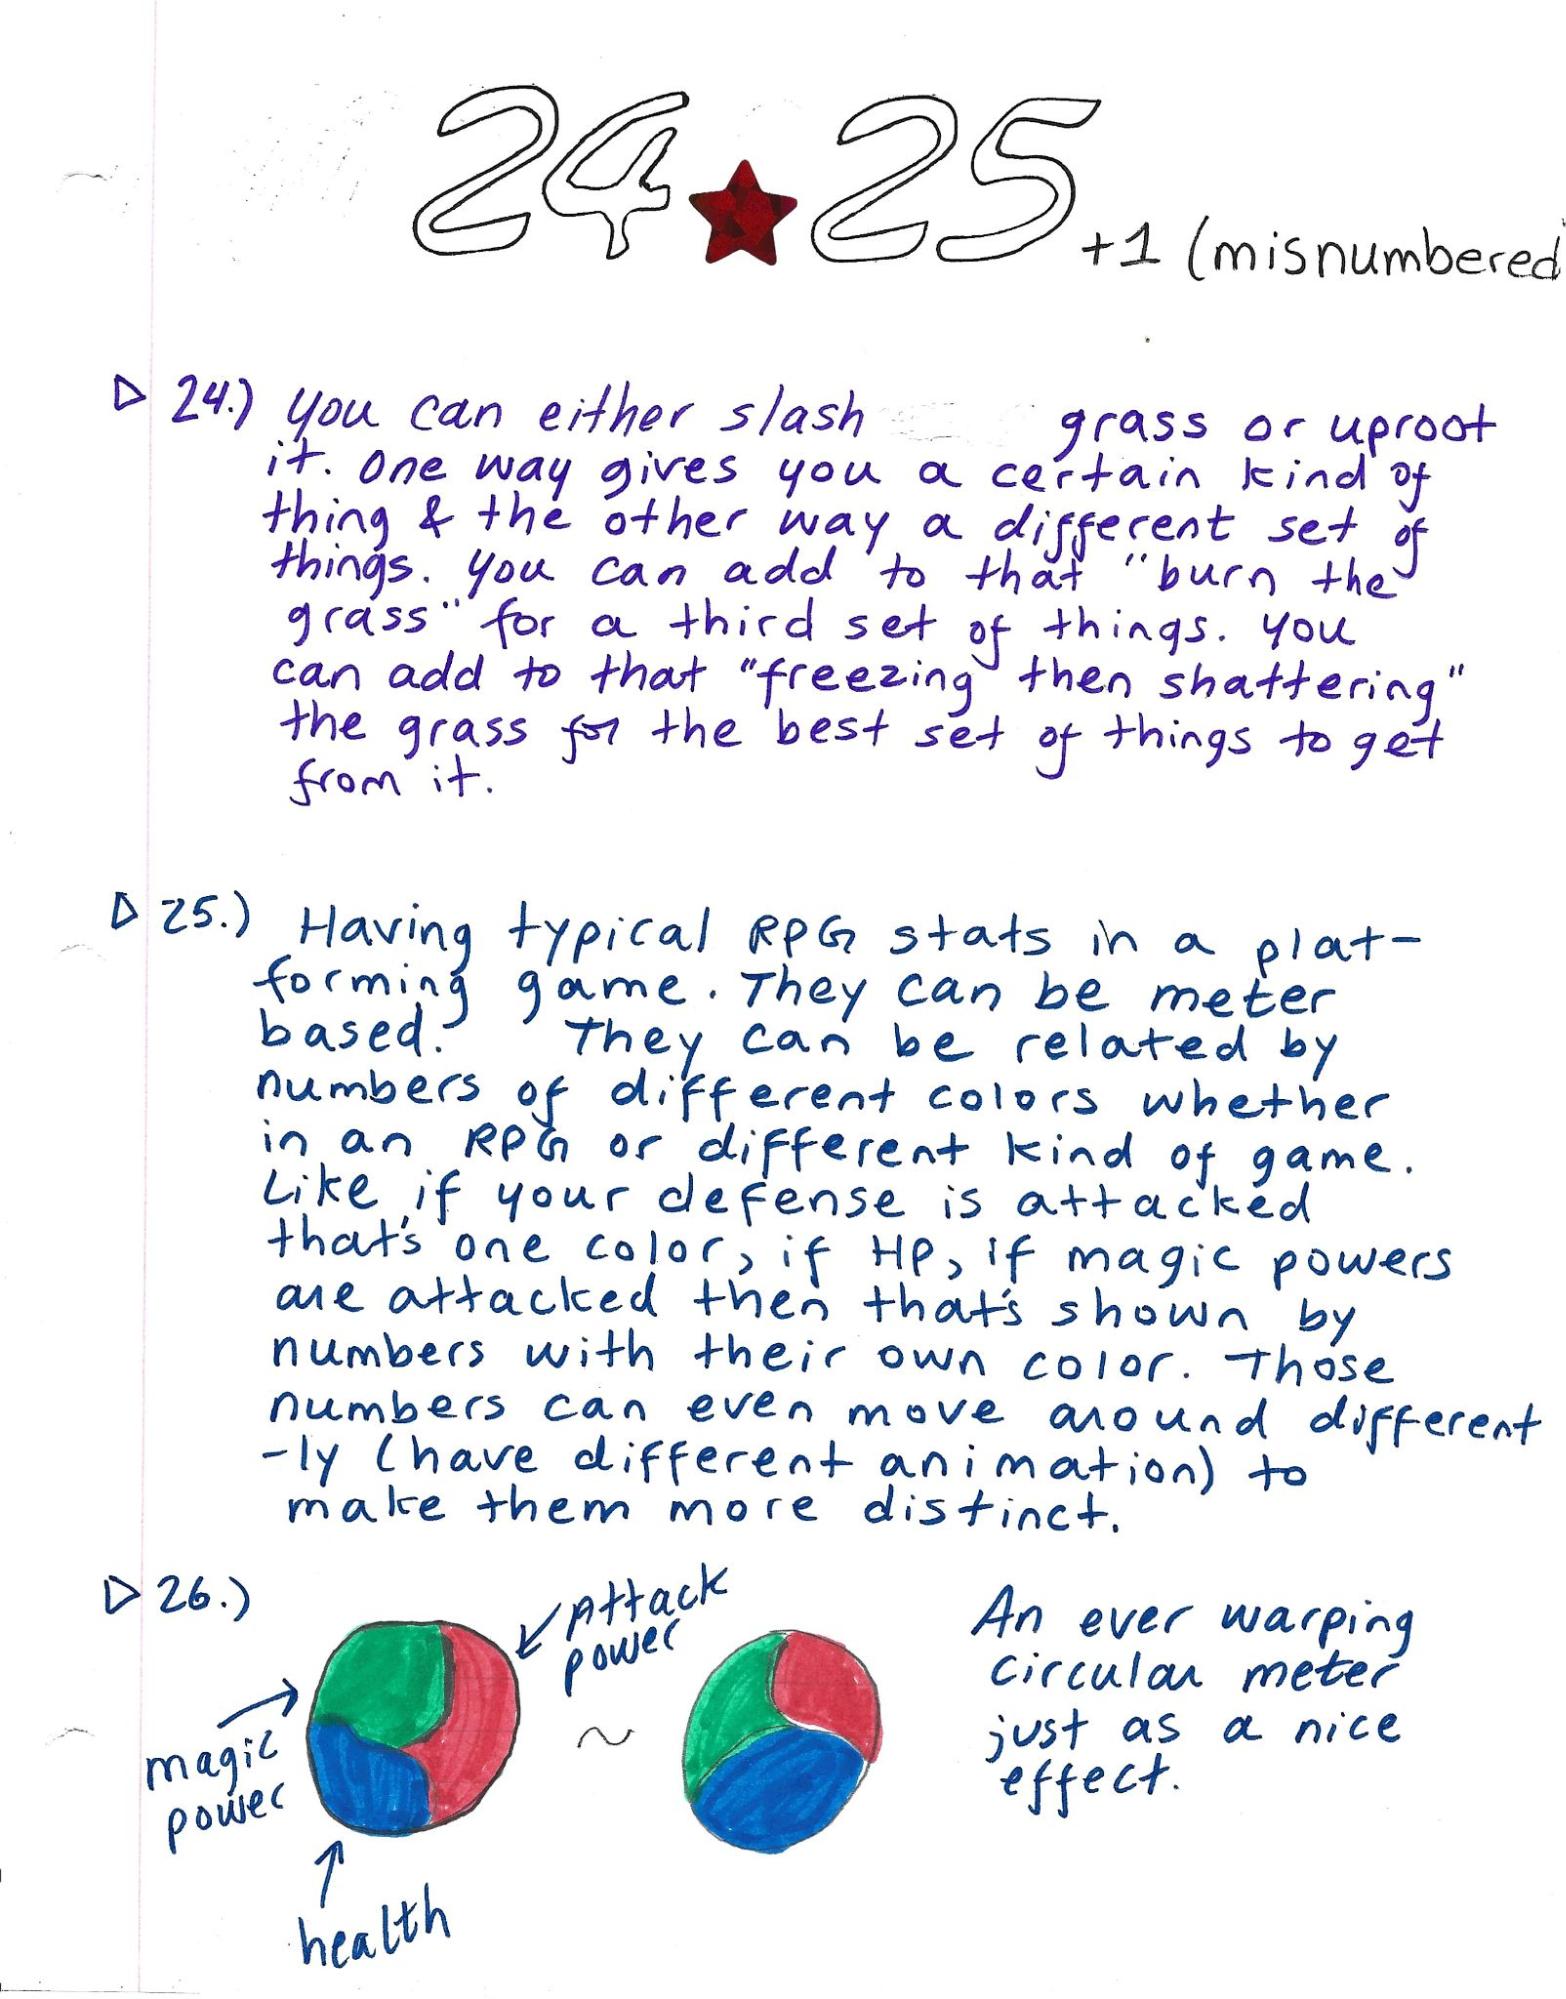 24 ★ 25 +1 (misnumbered
▷ 24.) You can either slash grass or uproot
it. One way gives you a certain kind of
thing & the other way a different set of
things. You can add to that "burn the
grass" for a third set of things. You
can add to that "freezing then shattering"
the grass for the best set of things to get
from it.
▷ 25.) Having typical RPG stats in a plat-
forming game. They can be meter
based. They can be related by
numbers of different colors whether
in an RPG or different kind of game.
Like if your defense is attacked
that's one color, if HP, if magic powers
are attacked then that's shown by
numbers with their own color. Those
numbers can even move around different
-ly (have different animation) to
make them more distinct.
▷ 26.)
Attack
power
magic
power
health
~
An ever warping
circular meter
just as a nice
effect.